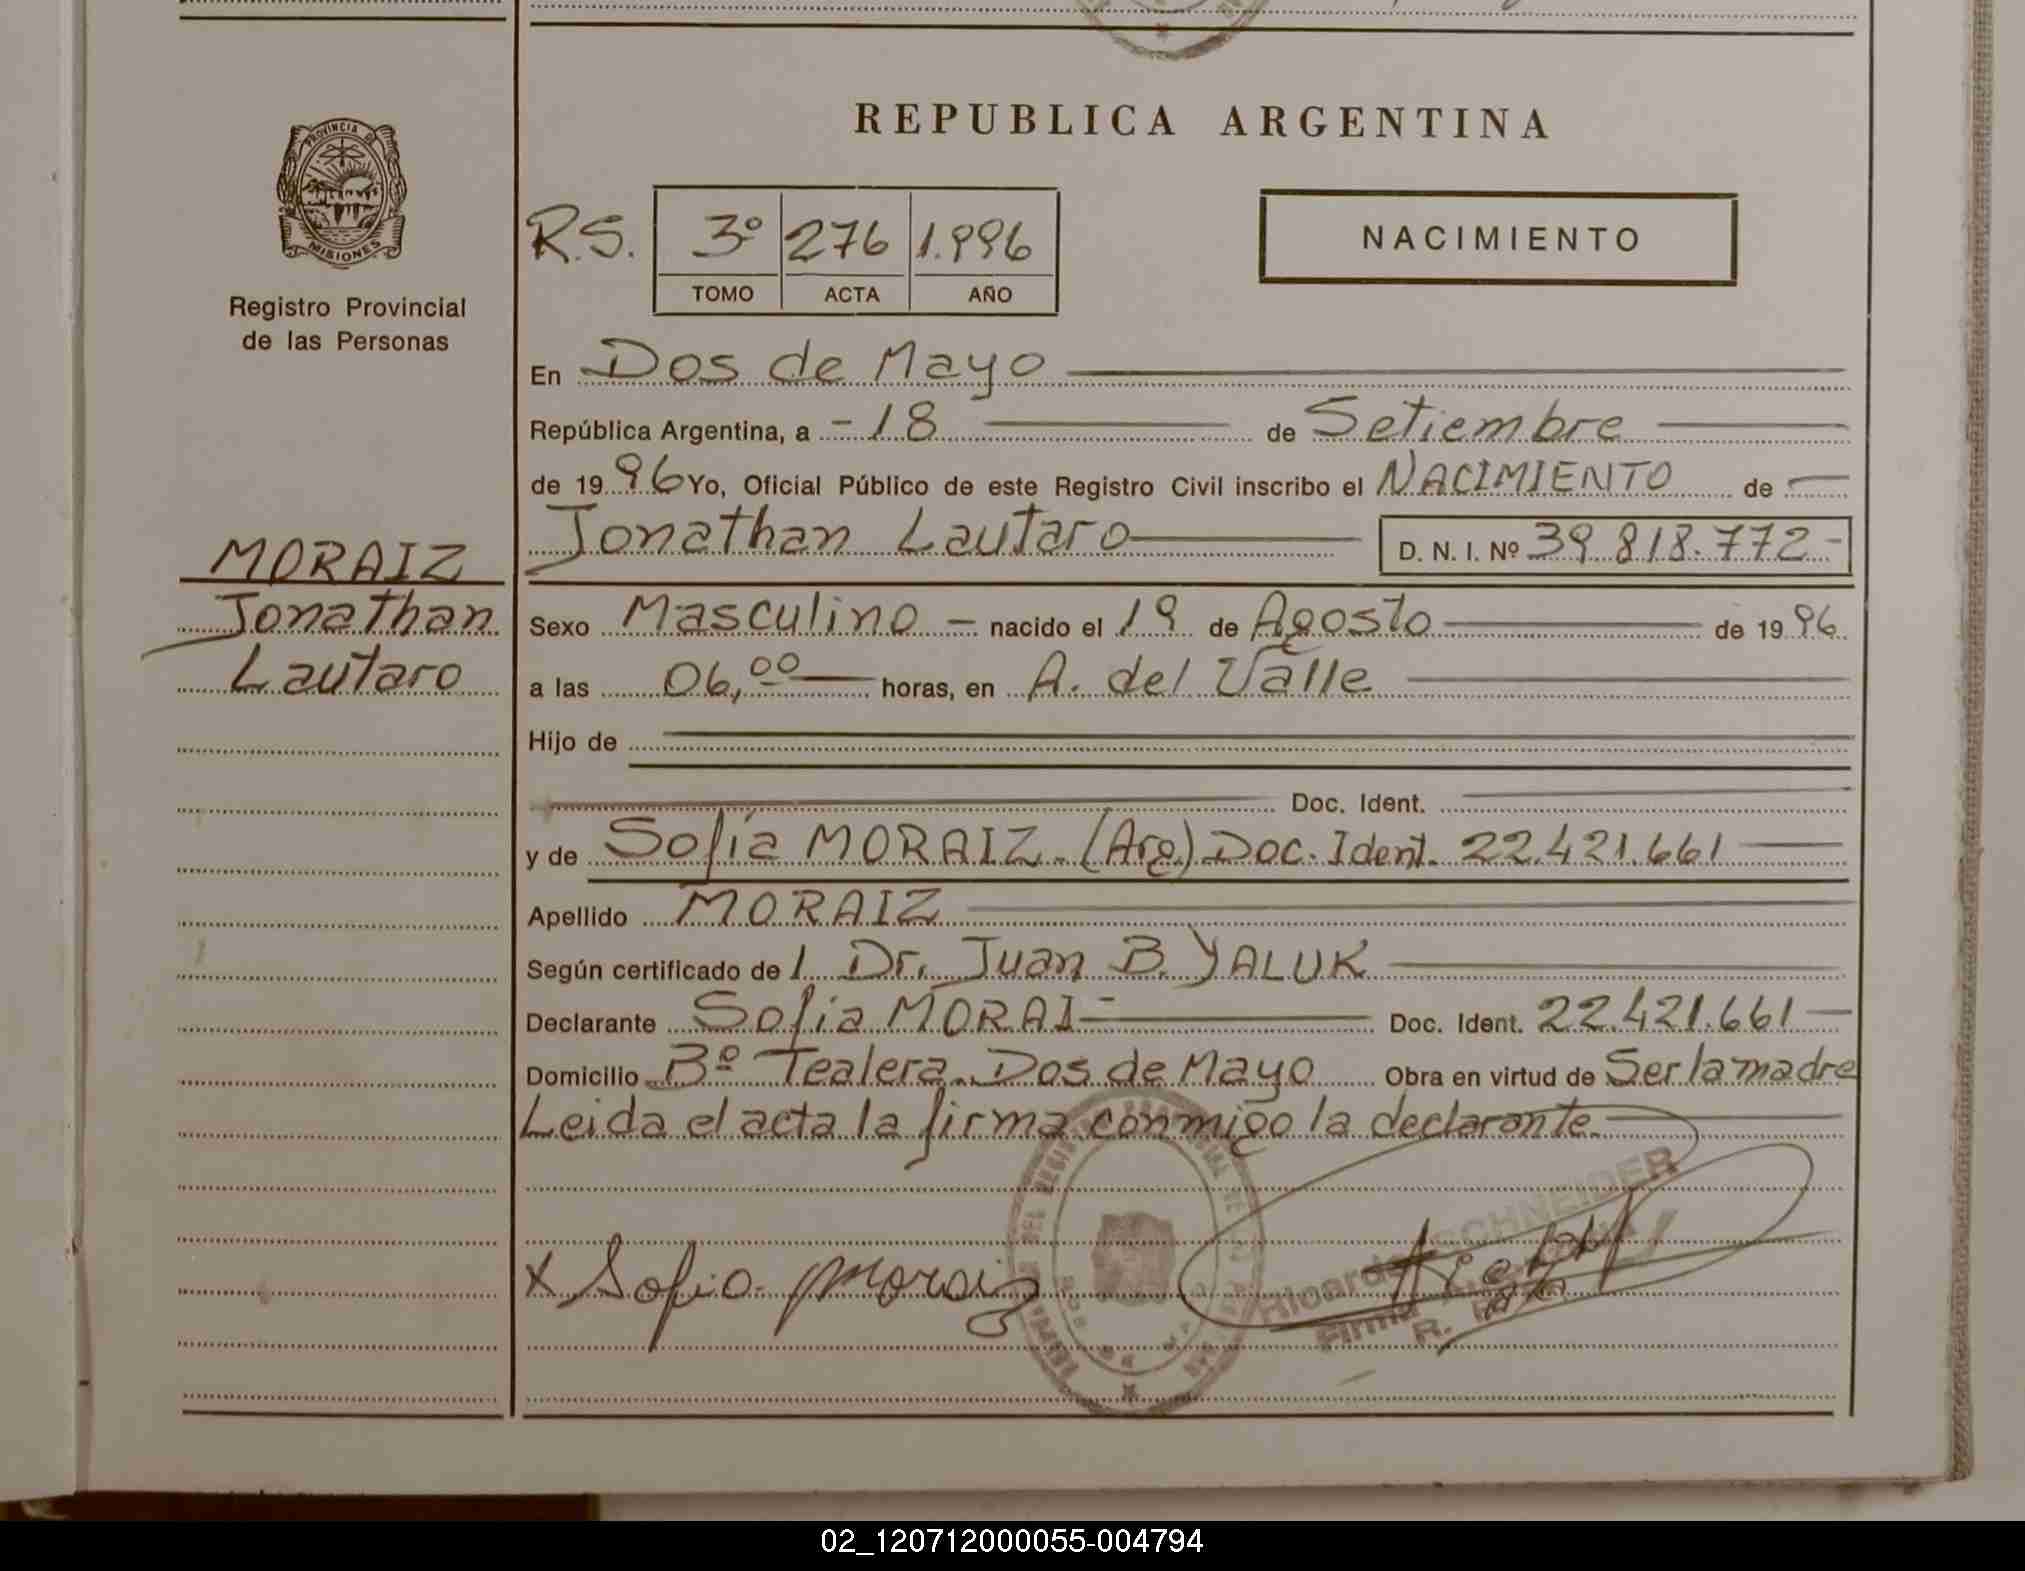 REPUBLICA ARGENTINA
PROVINCIA D
MISIONES
Registro Provincial
de las Personas
R.S. 3º 276 1.996
TOMO ACTA AÑO
NACIMIENTO
En Dos de Mayo
República Argentina, a - 18 de Setiembre
de 19 96 Yo, Oficial Público de este Registro Civil inscribo el NACIMIENTO de
Jonathan Lautaro D. N. I. Nº 39.818.772-
MORAIZ
Jonathan
Lautaro
Sexo Masculino - nacido el 19 de Agosto de 19 96
a las 06,00 horas, en A. del Valle
Hijo de
Doc. Ident.
y de Sofía MORAIZ. (Arg.) Doc. Ident. 22.421.661
Apellido MORAIZ
Según certificado de l Dr. Juan B. YALUK
Declarante Sofia MORAI- Doc. Ident. 22.421.661
Domicilio Bº Tealera. Dos de Mayo Obra en virtud de Ser la madre
Leida el acta la firma conmigo la declarante.
x Sofia Moraiz
Ricardo SCHNEIDER
Firma
R.
02_120712000055-004794